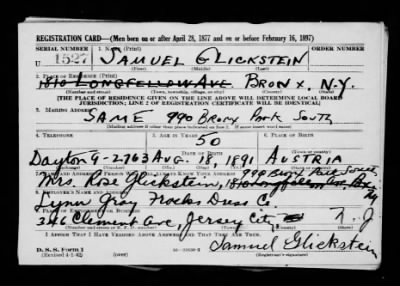 REGISTRATION CARD—(Men born on or after April 28, 1877 and on or before February 16, 1897)
SERIAL NUMBER 1. NAME (Print) ORDER NUMBER
U 1527 SAMUEL GLICKSTEIN
(First) (Middle) (Last)
2. PLACE OF RESIDENCE (Print)
1810 LONGFELLOW AVE BRONX, N.Y.
(Number and street) (Town, township, village, or city) (County) (State)
[THE PLACE OF RESIDENCE GIVEN ON THE LINE ABOVE WILL DETERMINE LOCAL BOARD
JURISDICTION; LINE 2 OF REGISTRATION CERTIFICATE WILL BE IDENTICAL]
3. MAILING ADDRESS
SAME 990 Bronx Park South
(Mailing address if other than place indicated on line 2. If same insert word same)
4. TELEPHONE 5. AGE IN YEARS 6. PLACE OF BIRTH
50
DATE OF BIRTH
Dayton 9-2763 AUG. 18, 1891 AUSTRIA
7. NAME AND ADDRESS OF PERSON WHO WILL ALWAYS KNOW YOUR ADDRESS 990 Bronx Park South
Mrs. Rose Glickstein, 1810 Longfellow Av, Bx, NY
8. EMPLOYER'S NAME AND ADDRESS
Lynn Gray Frocks Dress Co.
9. PLACE OF EMPLOYMENT OR BUSINESS
Clement Ave, Jersey City, N. J.
I AFFIRM THAT I HAVE VERIFIED ABOVE ANSWERS AND THAT THEY ARE TRUE.
D. S. S. Form 1 Samuel Glickstein
(Revised 4-1-42) (Registrant's signature)